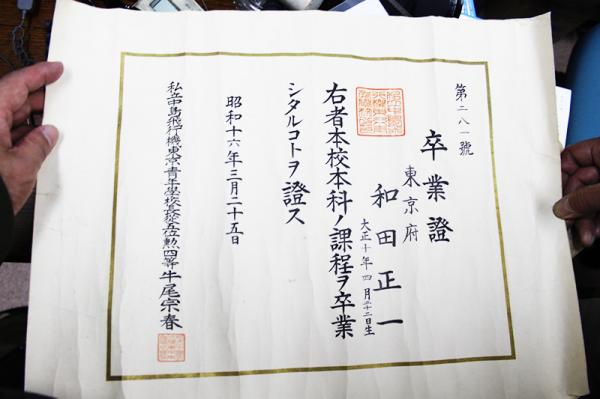 第二八一號
卒業證
東京府
和田正一
大正十年四月二十二日生
右者本校本科ノ課程ヲ卒業
シタルコトヲ證ス
昭和十六年三月二十五日
私立中島飛行機東京青年學校長從五位勲四等牛尾宗春